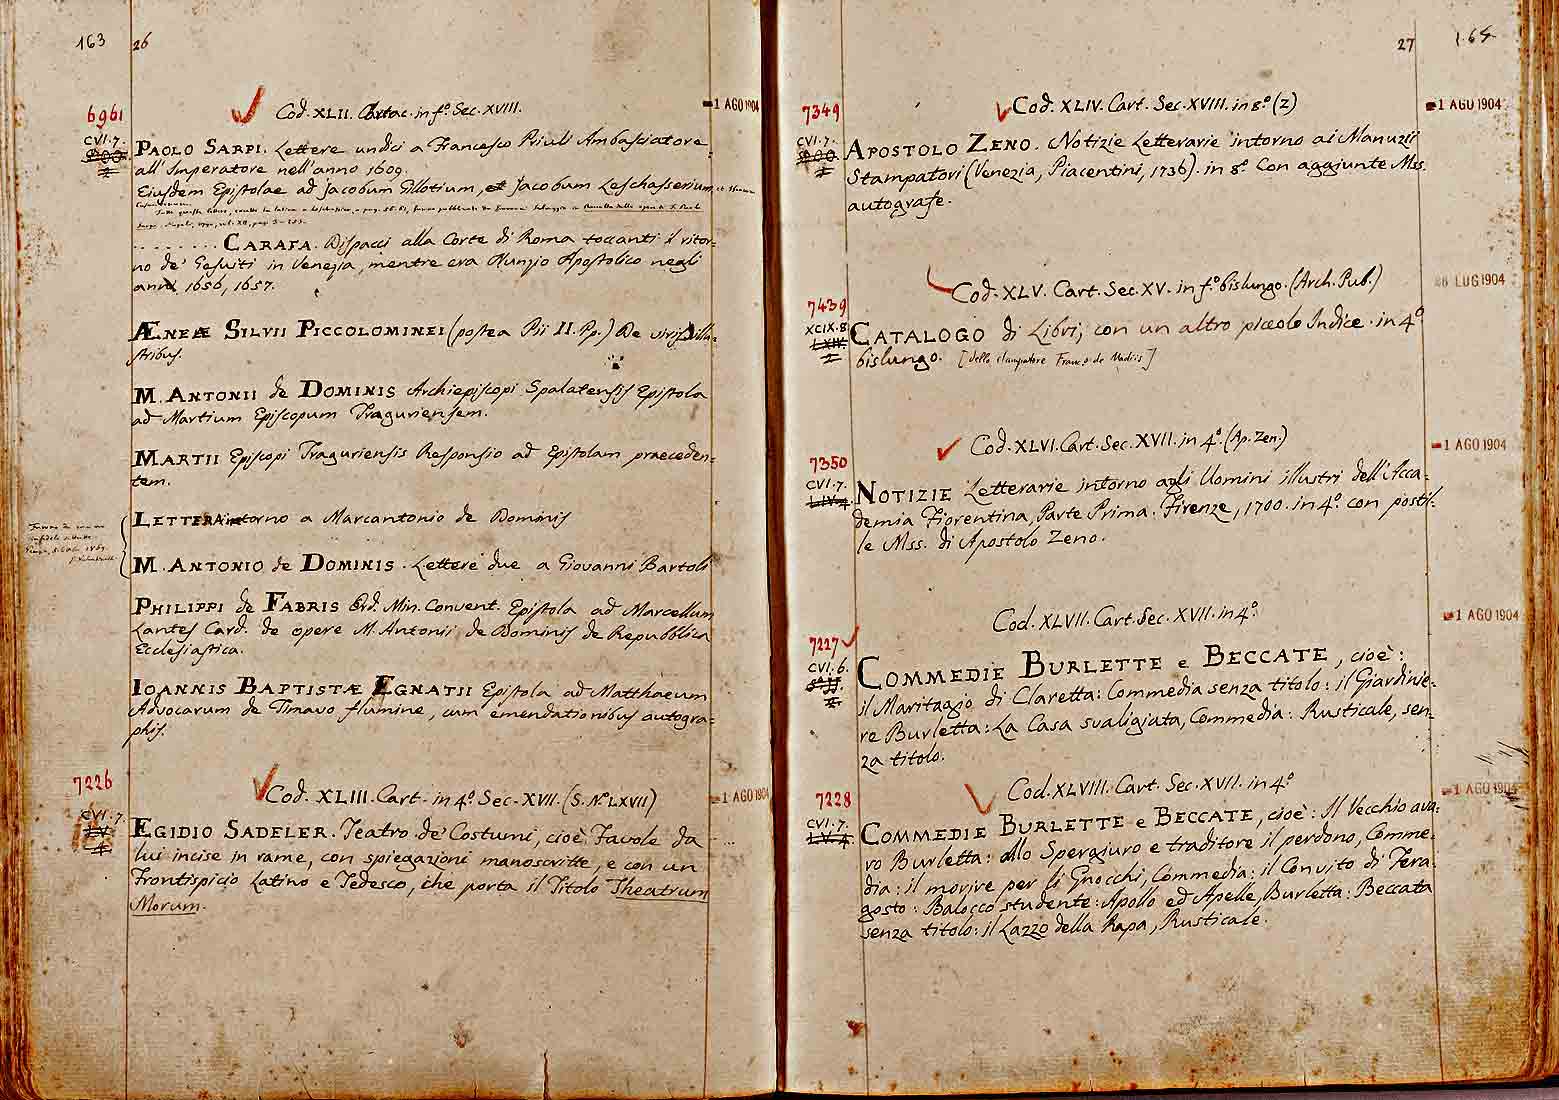 163
26
6961
Cod. XLII. Cartac. in fº. Sec. XVIII.
1 AGO 1904
CVI. 7.
PAOLO SARPI. Lettere undici a Francesco Priuli Ambasciatore
all' Imperatore nell' anno 1609.
Ejusdem Epistolae ad Jacobum Gillotium, et Jacobum Leschasserium,
........ CARAFA. Dispacci alla Corte di Roma toccanti il ritor=
no de' Gesuiti in Venezia, mentre era Nunzio Apostolico negli
anni 1656, 1657.
ÆNEÆ SILVII PICCOLOMINEI (postea Pii II. Pp.) De viris illu=
stribus.
M. ANTONII de DOMINIS Archiepiscopi Spalatensis Epistola
ad Martium Episcopum Traguriensem.
MARTII Episcopi Traguriensis Responsio ad Epistolam praeceden=
tem.
LETTERA intorno a Marcantonio de Dominis
M. ANTONIO de DOMINIS. Lettere due a Giovanni Bartoli
PHILIPPI de FABRIS Ord. Min. Convent. Epistola ad Marcellum
Lantes Card. de opere M. Antonii de Dominis de Repubblica
Ecclesiastica.
IOANNIS BAPTISTÆ EGNATII Epistola ad Matthaeum
Advocarum de Timavo flumine, cum emendationibus autogra=
phis.
7226
Cod. XLIII. Cart. in 4º. Sec. XVII. (S. Nº LXVII)
1 AGO 1904
CVI. 7.
LV
4
EGIDIO SADELER. Teatro de' Costumi, cioè, Tavole da
lui incise in rame, con spiegazioni manoscritte, e con un
Frontispicio Latino e Tedesco, che porta il Titolo Theatrum
Morum.
27
164
7349
Cod. XLIV. Cart. Sec. XVIII. in 8º. (Z)
1 AGO 1904
CVI. 7.
APOSTOLO ZENO. Notizie Letterarie intorno ai Manuzii
Stampatori (Venezia, Piacentini, 1736). in 8º. Con aggiunte Mss.
autografe.
Cod. XLV. Cart. Sec. XV. in fº. bislungo. (Arch. Pub.)
28 LUG 1904
7439
XCIX. 8
LXIV.
CATALOGO di Libri, con un altro piccolo Indice. in 4º.
bislungo. [dello stampatore Franc.º de Madiis]
Cod. XLVI. Cart. Sec. XVII. in 4º. (Ap. Zen.)
1 AGO 1904
7350
CVI. 7.
LIV. 4.
NOTIZIE Letterarie intorno agli Uomini illustri dell' Acca=
demia Fiorentina, Parte Prima. Firenze, 1700. in 4º. con postil=
le Mss. di Apostolo Zeno.
Cod. XLVII. Cart. Sec. XVII. in 4º.
1 AGO 1904
7227
CVI. 6.
COMMEDIE BURLETTE e BECCATE, cioè:
il Maritagio di Claretta: Commedia senza titolo: il Giardinie=
re Burletta: La Casa svaligiata, Commedia: Rusticale, sen=
za titolo.
Cod. XLVIII. Cart. Sec. XVII. in 4º
1 AGO 1904
7228
CVI. 7.
LV. 4.
COMMEDIE BURLETTE e BECCATE, cioè: Il Vecchio ava=
ro Burletta: allo Sperajuro e traditore il perdono, Comme=
dia: il morire per li Gnocchi, Commedia: il Convito di Fera=
gosto: Balocco studente: Apollo ed Apelle, Burletta: Beccata
senza titolo: il Lazzo della Rapa, Rusticale.